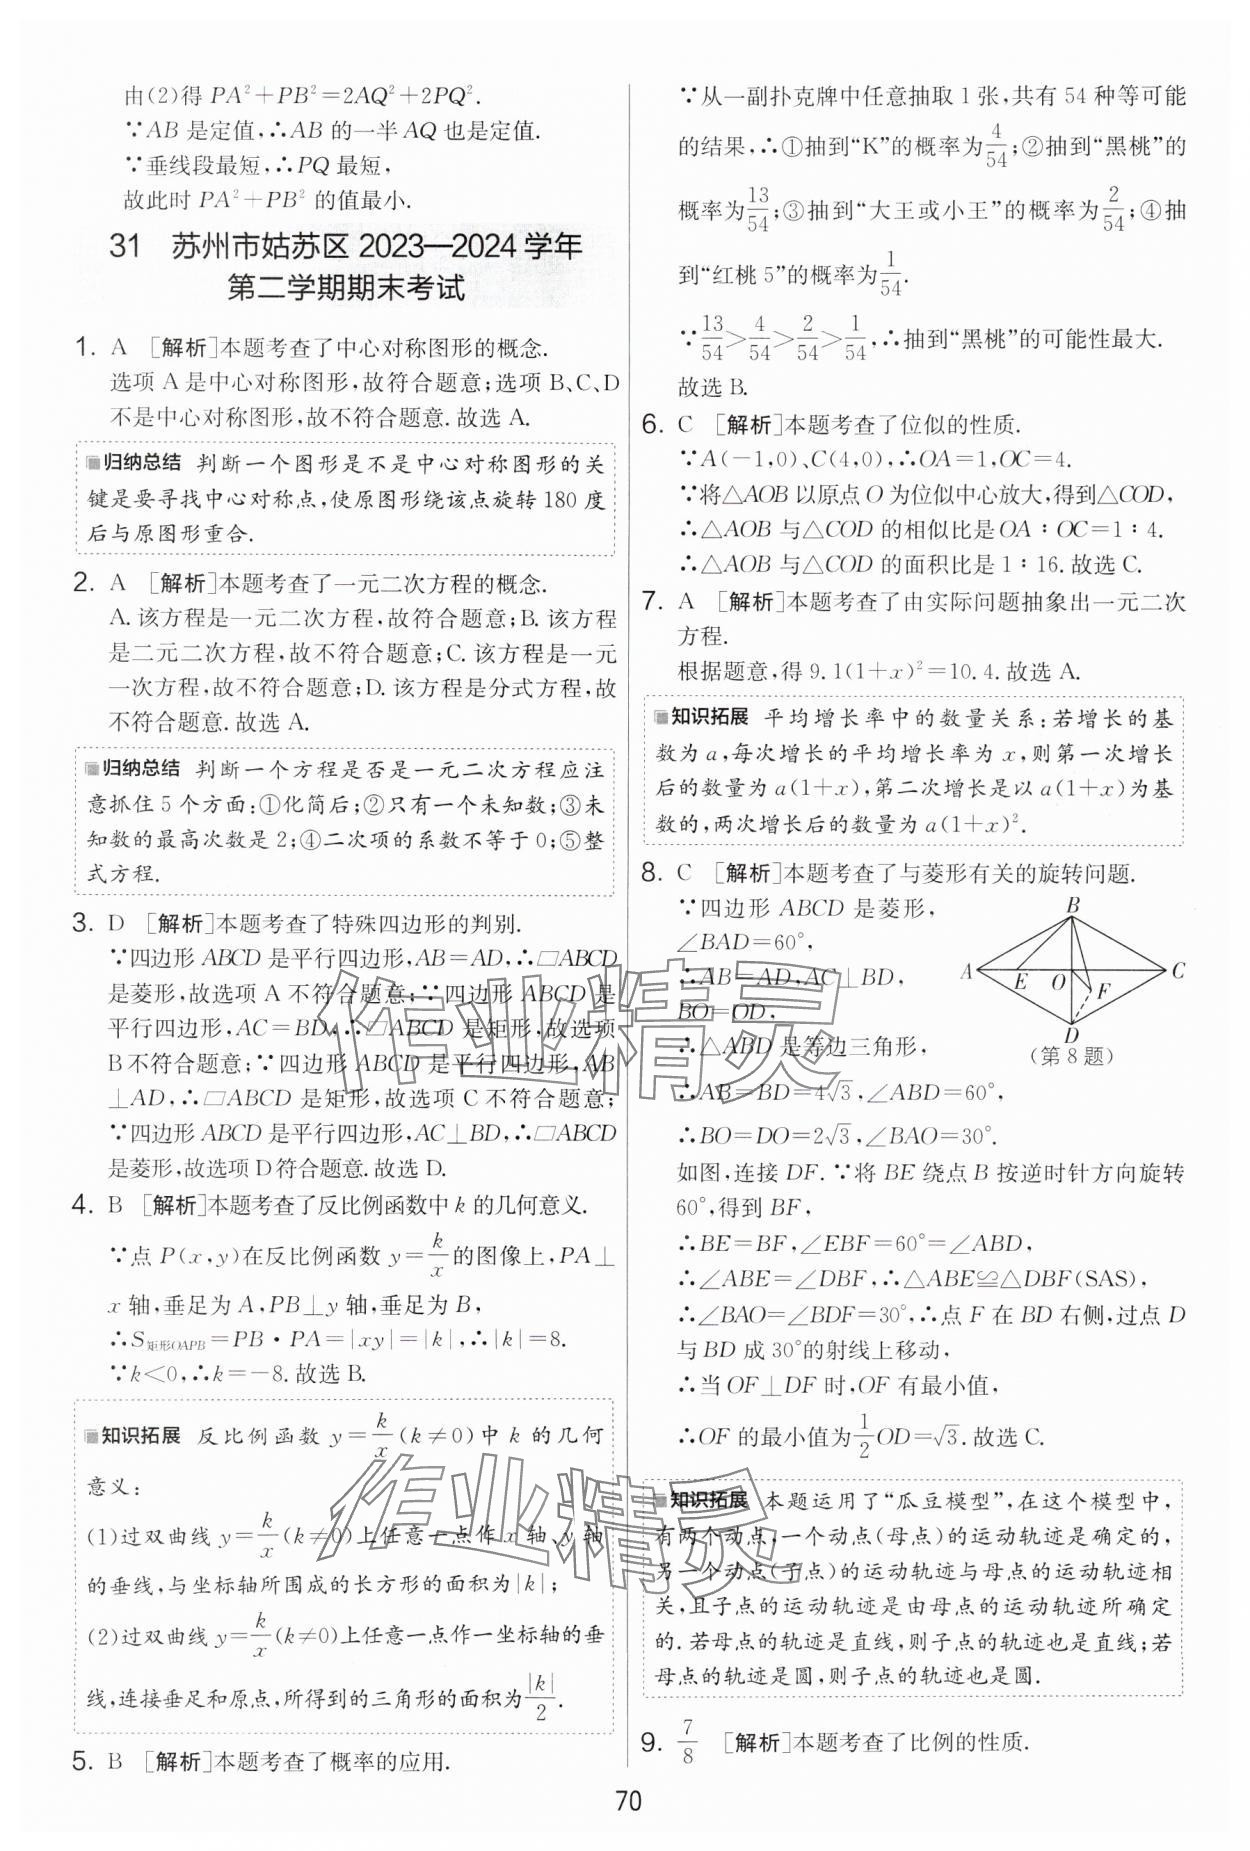 由(2)得 PA²+PB²=2AQ²+2PQ².
∵AB 是定值,∴AB 的一半 AQ 也是定值.
∵垂线段最短,∴PQ 最短,
故此时 PA²+PB² 的值最小.
31 苏州市姑苏区 2023—2024 学年
第二学期期末考试
1. A [解析]本题考查了中心对称图形的概念.
选项 A 是中心对称图形,故符合题意;选项 B、C、D
不是中心对称图形,故不符合题意. 故选 A.
归纳总结 判断一个图形是不是中心对称图形的关
键是要寻找中心对称点,使原图形绕该点旋转 180 度
后与原图形重合.
2. A [解析]本题考查了一元二次方程的概念.
A. 该方程是一元二次方程,故符合题意;B. 该方程
是二元二次方程,故不符合题意;C. 该方程是一元
一次方程,故不符合题意;D. 该方程是分式方程,故
不符合题意. 故选 A.
归纳总结 判断一个方程是否是一元二次方程应注
意抓住 5 个方面:①化简后;②只有一个未知数;③未
知数的最高次数是 2;④二次项的系数不等于 0;⑤整
式方程.
3. D [解析]本题考查了特殊四边形的判别.
∵四边形 ABCD 是平行四边形,AB=AD,∴□ABCD
是菱形,故选项 A 不符合题意;∵四边形 ABCD 是
平行四边形,AC=BD,∴□ABCD 是矩形,故选项
B 不符合题意;∵四边形 ABCD 是平行四边形,AB
⊥AD,∴□ABCD 是矩形,故选项 C 不符合题意;
∵四边形 ABCD 是平行四边形,AC⊥BD,∴□ABCD
是菱形,故选项 D 符合题意. 故选 D.
4. B [解析]本题考查了反比例函数中 k 的几何意义.
∵点 P(x,y)在反比例函数 y=k/x 的图像上,PA⊥
x 轴,垂足为 A,PB⊥y 轴,垂足为 B,
∴S矩形OAPB=PB·PA=|xy|=|k|,∴|k|=8.
∵k<0,∴k=-8. 故选 B.
知识拓展 反比例函数 y=k/x(k≠0)中 k 的几何
意义:
(1)过双曲线 y=k/x(k≠0)上任意一点作 x 轴、y 轴
的垂线,与坐标轴所围成的长方形的面积为|k|;
(2)过双曲线 y=k/x(k≠0)上任意一点作一坐标轴的垂
线,连接垂足和原点,所得到的三角形的面积为|k|/2.
5. B [解析]本题考查了概率的应用.
∵从一副扑克牌中任意抽取 1 张,共有 54 种等可能
的结果,∴①抽到“K”的概率为4/54;②抽到“黑桃”的
概率为13/54;③抽到“大王或小王”的概率为2/54;④抽
到“红桃 5”的概率为1/54.
∵13/54>4/54>2/54>1/54,∴抽到“黑桃”的可能性最大.
故选 B.
6. C [解析]本题考查了位似的性质.
∵A(-1,0)、C(4,0),∴OA=1,OC=4.
∵将△AOB 以原点 O 为位似中心放大,得到△COD,
∴△AOB 与△COD 的相似比是 OA∶OC=1∶4.
∴△AOB 与△COD 的面积比是 1∶16. 故选 C.
7. A [解析]本题考查了由实际问题抽象出一元二次
方程.
根据题意,得 9.1(1+x)²=10.4. 故选 A.
知识拓展 平均增长率中的数量关系:若增长的基
数为 a,每次增长的平均增长率为 x,则第一次增长
后的数量为 a(1+x),第二次增长是以 a(1+x)为基
数的,两次增长后的数量为 a(1+x)².
8. C [解析]本题考查了与菱形有关的旋转问题.
∵四边形 ABCD 是菱形,
∠BAD=60°,
∴AB=AD,AC⊥BD,
BO=OD,
∴△ABD 是等边三角形,
B
A E O F C
D
(第 8 题)
∴AB=BD=4√3,∠ABD=60°,
∴BO=DO=2√3,∠BAO=30°.
如图,连接 DF. ∵将 BE 绕点 B 按逆时针方向旋转
60°,得到 BF,
∴BE=BF,∠EBF=60°=∠ABD,
∴∠ABE=∠DBF,∴△ABE≌△DBF(SAS),
∴∠BAO=∠BDF=30°,∴点 F 在 BD 右侧,过点 D
与 BD 成 30°的射线上移动,
∴当 OF⊥DF 时,OF 有最小值,
∴OF 的最小值为1/2OD=√3. 故选 C.
知识拓展 本题运用了“瓜豆模型”,在这个模型中,
有两个动点,一个动点(母点)的运动轨迹是确定的,
另一个动点(子点)的运动轨迹与母点的运动轨迹相
关,且子点的运动轨迹是由母点的运动轨迹所确定
的. 若母点的轨迹是直线,则子点的轨迹也是直线;若
母点的轨迹是圆,则子点的轨迹也是圆.
9. 7/8 [解析]本题考查了比例的性质.
70
作业精灵
作业精灵